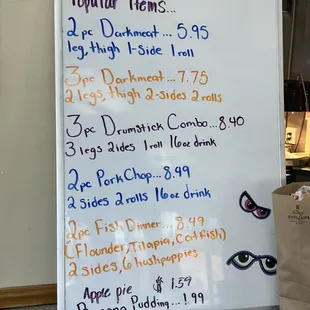 Popular Items...
2pc Darkmeat... 5.95
leg, thigh 1-Side 1roll
3pc Darkmeat... 7.75
2 legs, thigh 2-sides 2rolls
3pc Drumstick Combo...8.40
3 legs 2ides 1roll 16oz drink
2pc PorkChop...8.49
2 sides 2rolls 16oz drink
2pc Fish Dinner...8.49
(Flounder, Tilapia, Catfish)
2 sides, 6 hushpuppies
Apple pie $1.59
Pudding...1.99